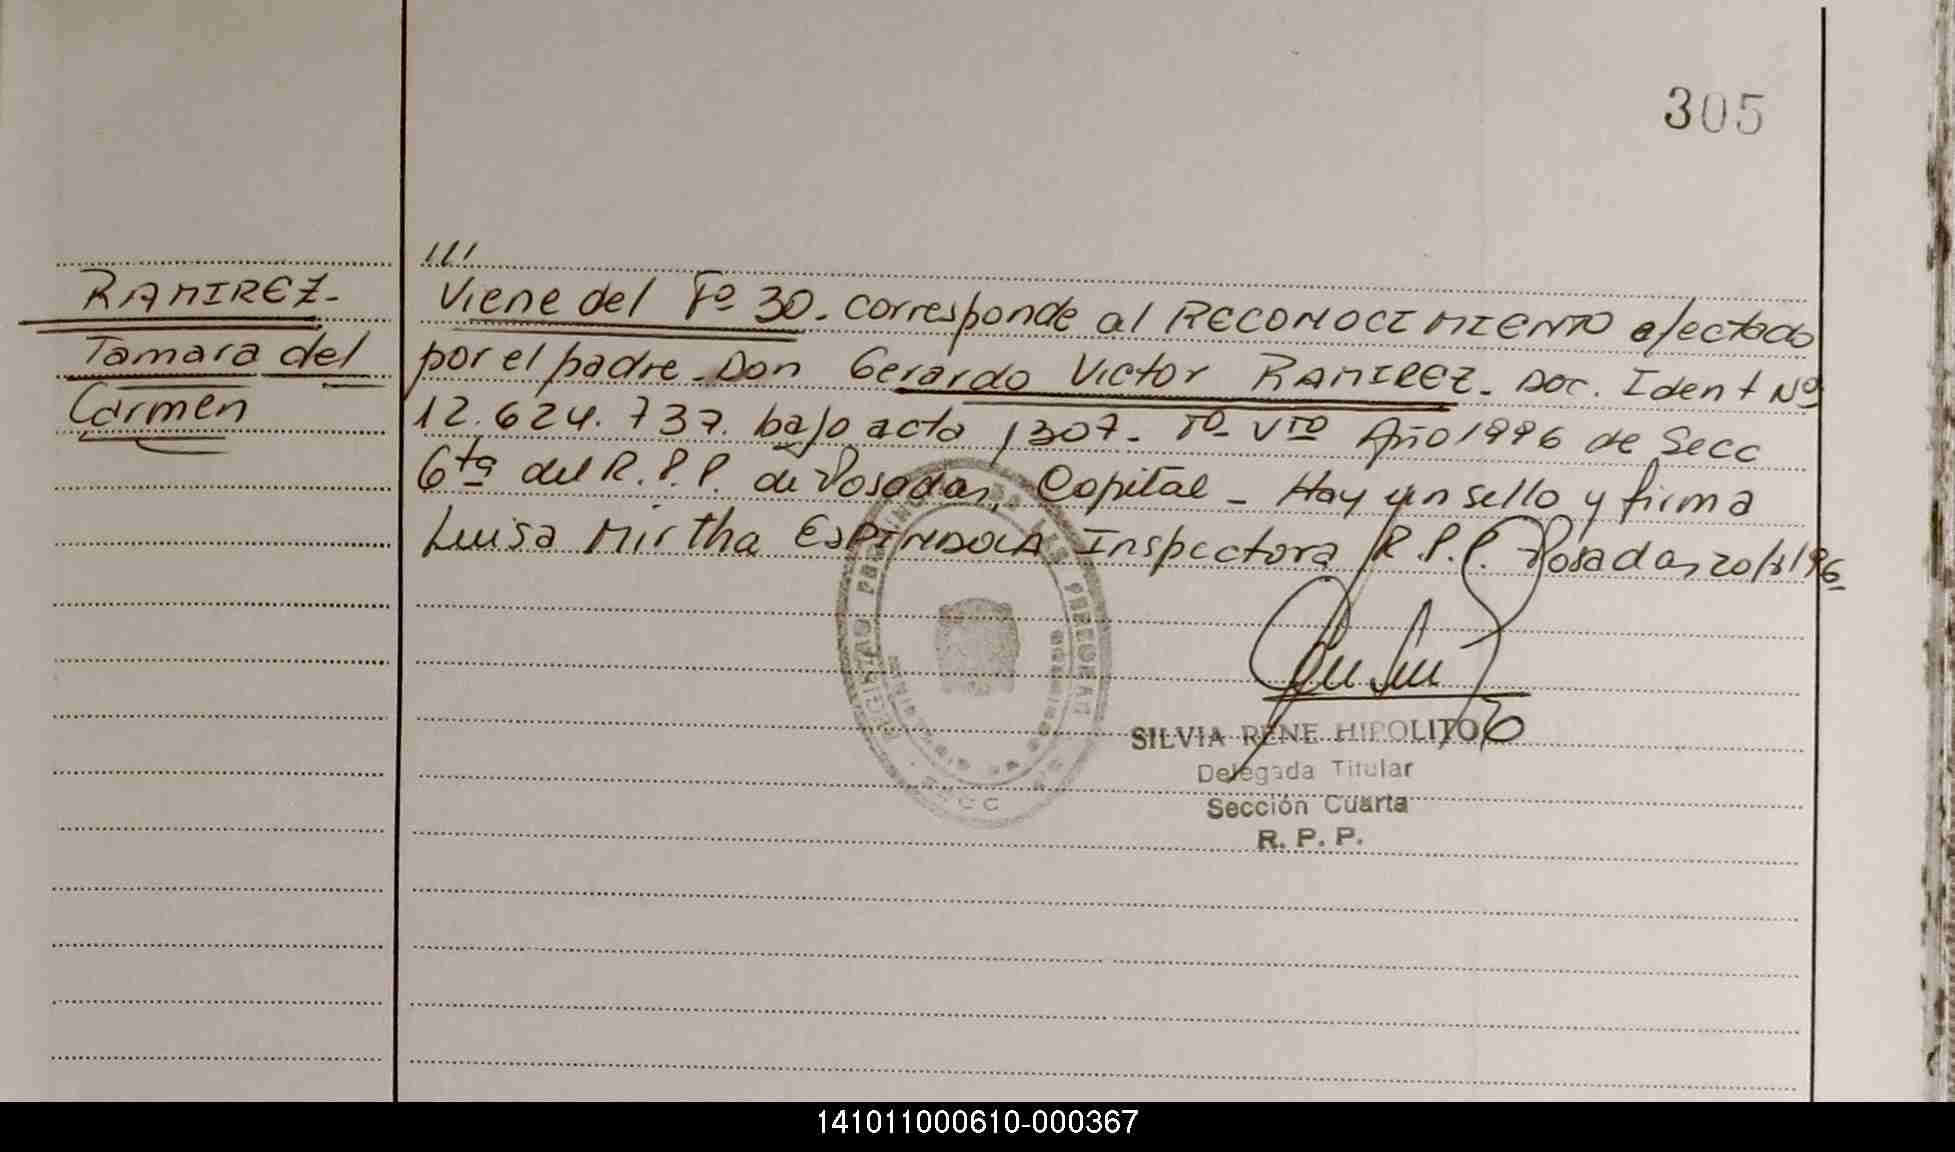 305
RAMIREZ-
Tamara del
Carmen
///
Viene del Fº 30. corresponde al RECONOCIMIENTO efectado
por el padre - Don Gerardo Victor RAMIREZ - Doc. Ident Nº
12.624.737. bajo acta 1307- Tº Vto Año 1996 de Secc
6ta del R.P.P. de Posadas, Capital - Hay un sello y firma
Luisa Mirtha ESPINDOLA Inspectora R.P.P. Posadas 20/8/96
SILVIA RENE HIPOLITO
Delegada Titular
Sección Cuarta
R. P. P.
141011000610-000367